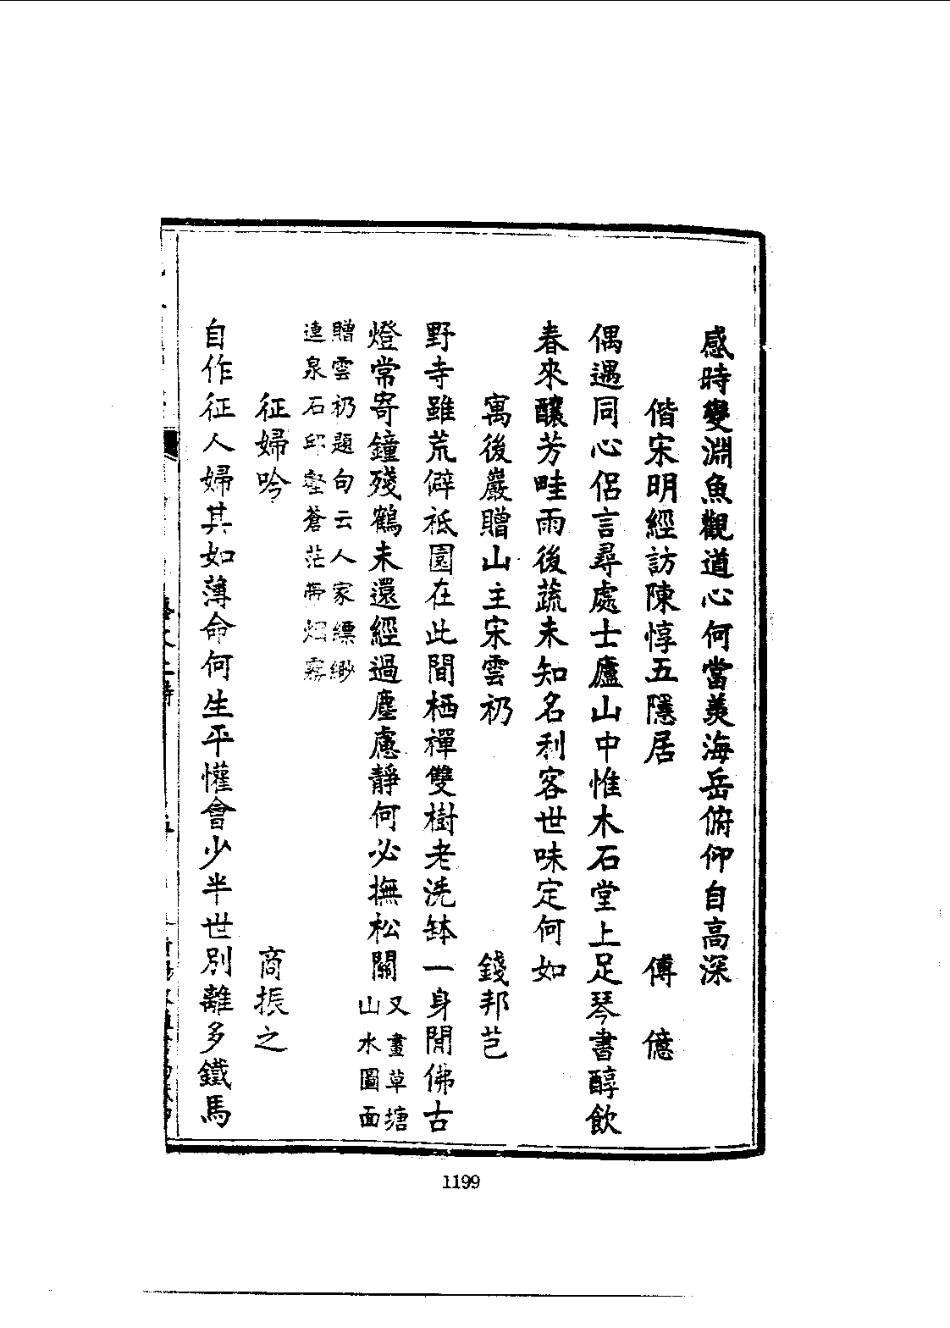 感時變淵魚觀道心何當羨海岳俯仰自高深
偕宋明經訪陳惇五隱居　傅　億
偶遇同心侶言尋處士廬山中惟木石堂上足琴書醇飲
春來釀芳畦雨後蔬未知名利客世味定何如
寓後巖贈山主宋雲礽　錢邦芑
野寺雖荒僻祗園在此間栖禪雙樹老洗鉢一身閒佛古
燈常寄鐘殘鶴未還經過塵慮靜何必撫松關
又畫草塘
山水圖面
贈雲礽題句云人家縹緲
連泉石邱壑蒼茫帶烟霧
征婦吟　商振之
自作征人婦其如薄命何生平懽會少半世別離多鐵馬
1199